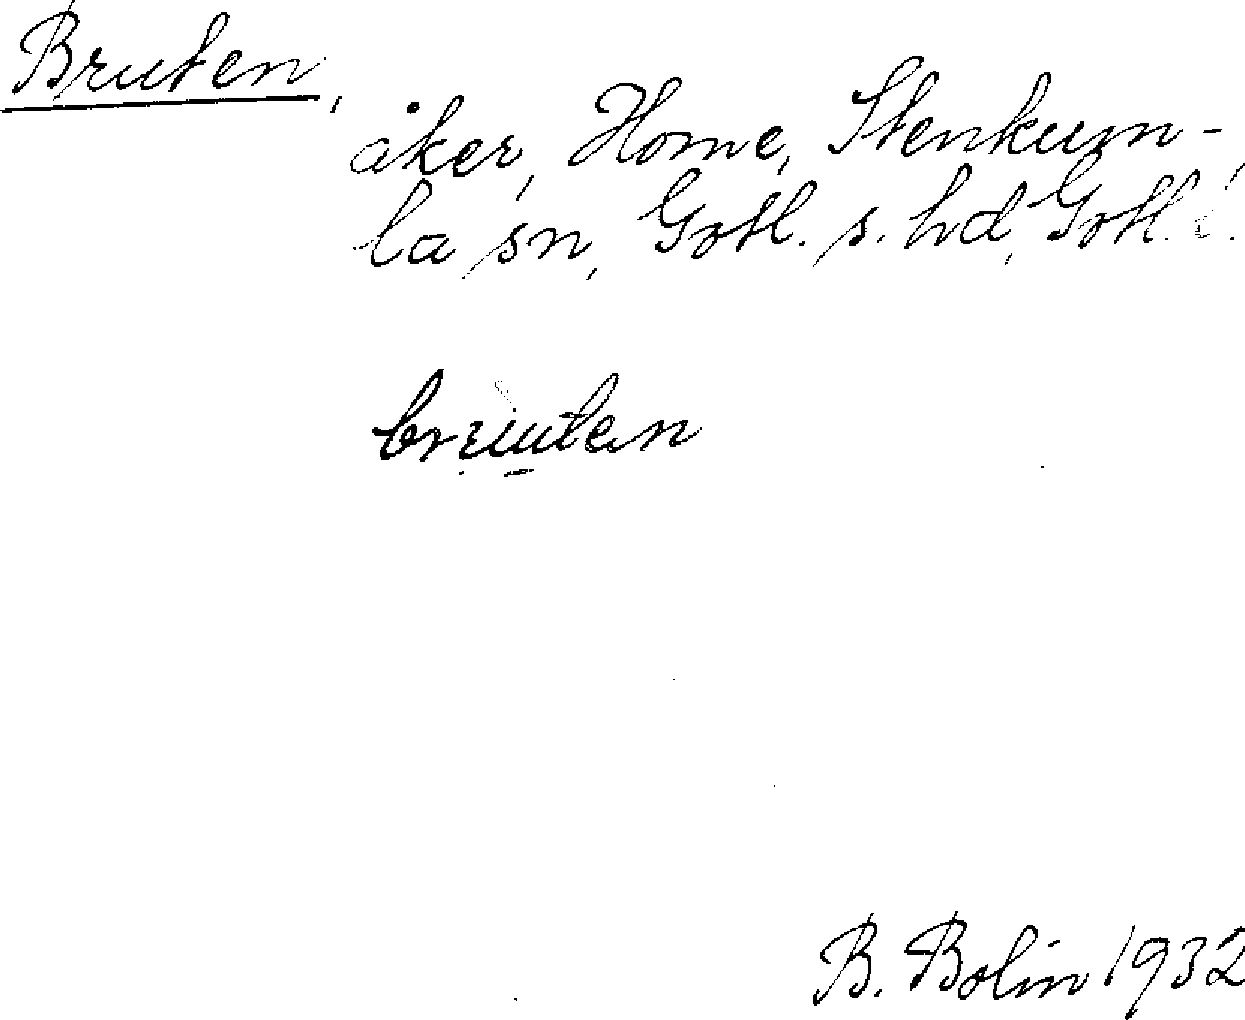 Bruten,
åker, Home, Stenkum-
la sn, Gotl. s. hd, Gotl. l.
B. Bolin 1932